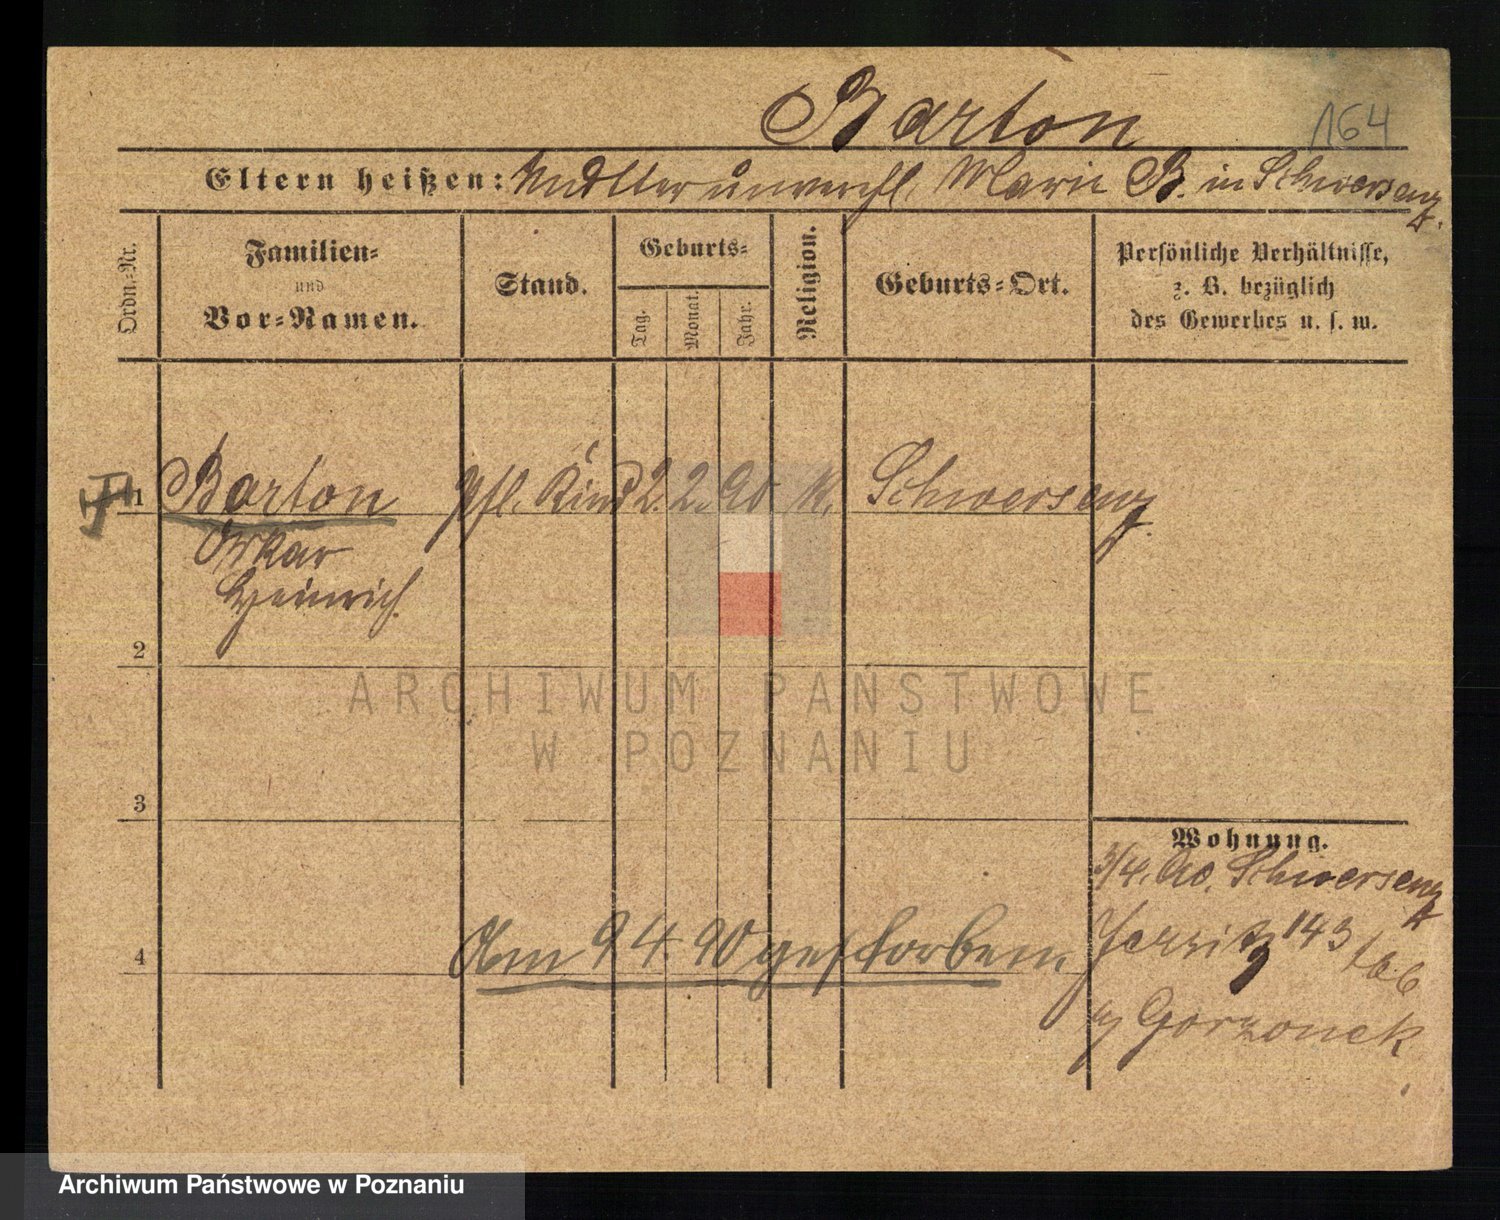 Barton
164
Eltern heißen: Mutter unverehl. Marie B. in Schwersenz.
Ordn.-Nr.
Familien- und Vor-Namen.
Stand.
Geburts-
Tag. Monat. Jahr.
Religion.
Geburts-Ort.
Persönliche Verhältnisse,
z. B. bezüglich
des Gewerbes u. s. w.
1 Barton Pfl. Kind 2. 2. 90 k. Schwersenz.
Oskar
Heinrich.
2
ARCHIWUM PAŃSTWOWE
W POZNANIU
3
Wohnung.
3/4. 90. Schwersenz
4 Am 9 4. 90 gestorben.
Jersitz 143
Gorzonek
Archiwum Państwowe w Poznaniu